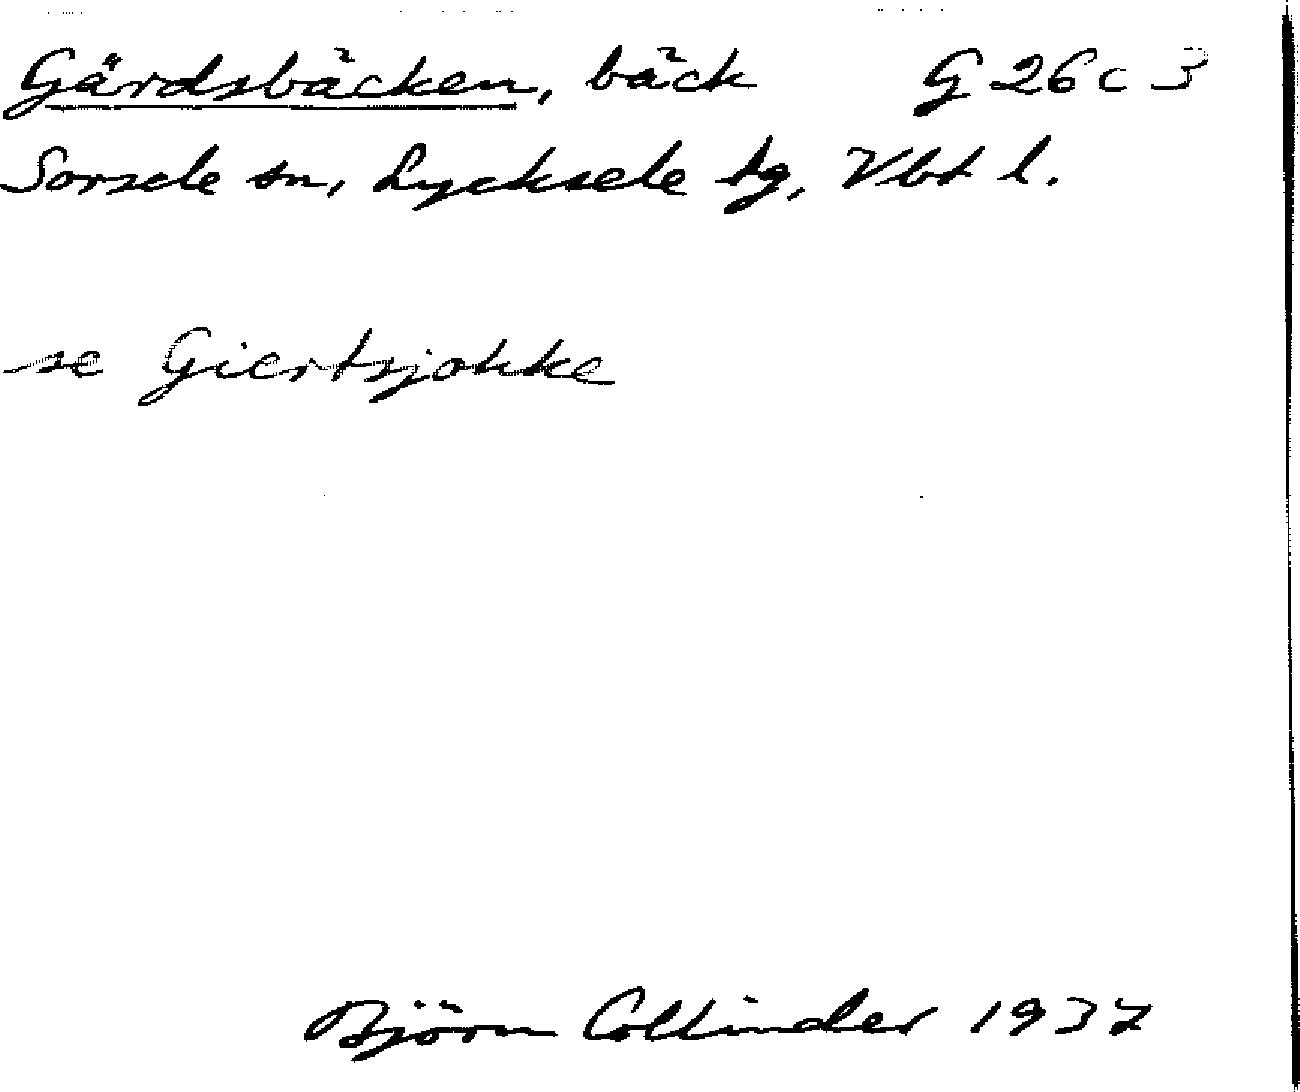 Gärdsbäcken, bäck G 26 c 3
Sorsele sn, Lycksele tg, Vbt l.
se Giertsjokke
Björn Collinder 1937